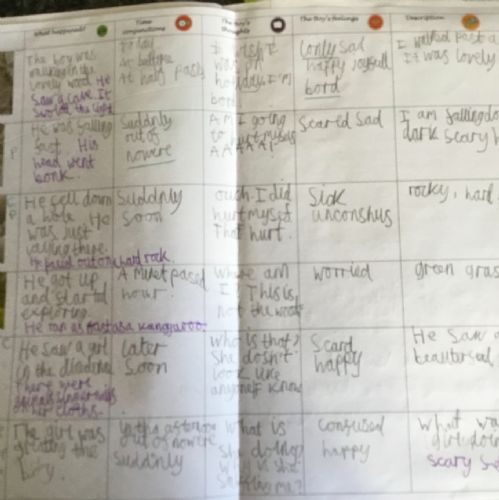 What happened?
Time connectives
The Boy's thoughts
The Boy's feelings
Description
The boy was
walking in the
lovely wood. He
Saw a cave. It
To day
At half past
I wish I
was on
holiday. I'm
bord
lonly Sad
happy joyfull
bord
I walked past a
It was lovely
He was falling
fast. His
head went
bonk.
Suddnly
out of
nowere
Am I going
to hurt myself
AAAAA!
Scared Sad
I am falling do
dark scary h
He fell down
a hole. He
was just
Suddnly
Soon
ouch. I did
hurt myself
That hurt.
Sick
unconshus
rocky, hard.
hard rock.
He got up
and started
exploring.
He ran as fast as a kangaroo.
A minet passed
hour.
where am
I? This is
not the woods
worried
green gras
He Saw a girl
in the
There were
her cloths.
Later
Soon
who is that?
She doesn't
look like
anyone I know
Scard
happy
He Saw a
The girl was
greeting this
boy.
out of nowere
Suddnly
What is
she doing?
why is she
me?
confused
happy
what wa
girl doin
scary S